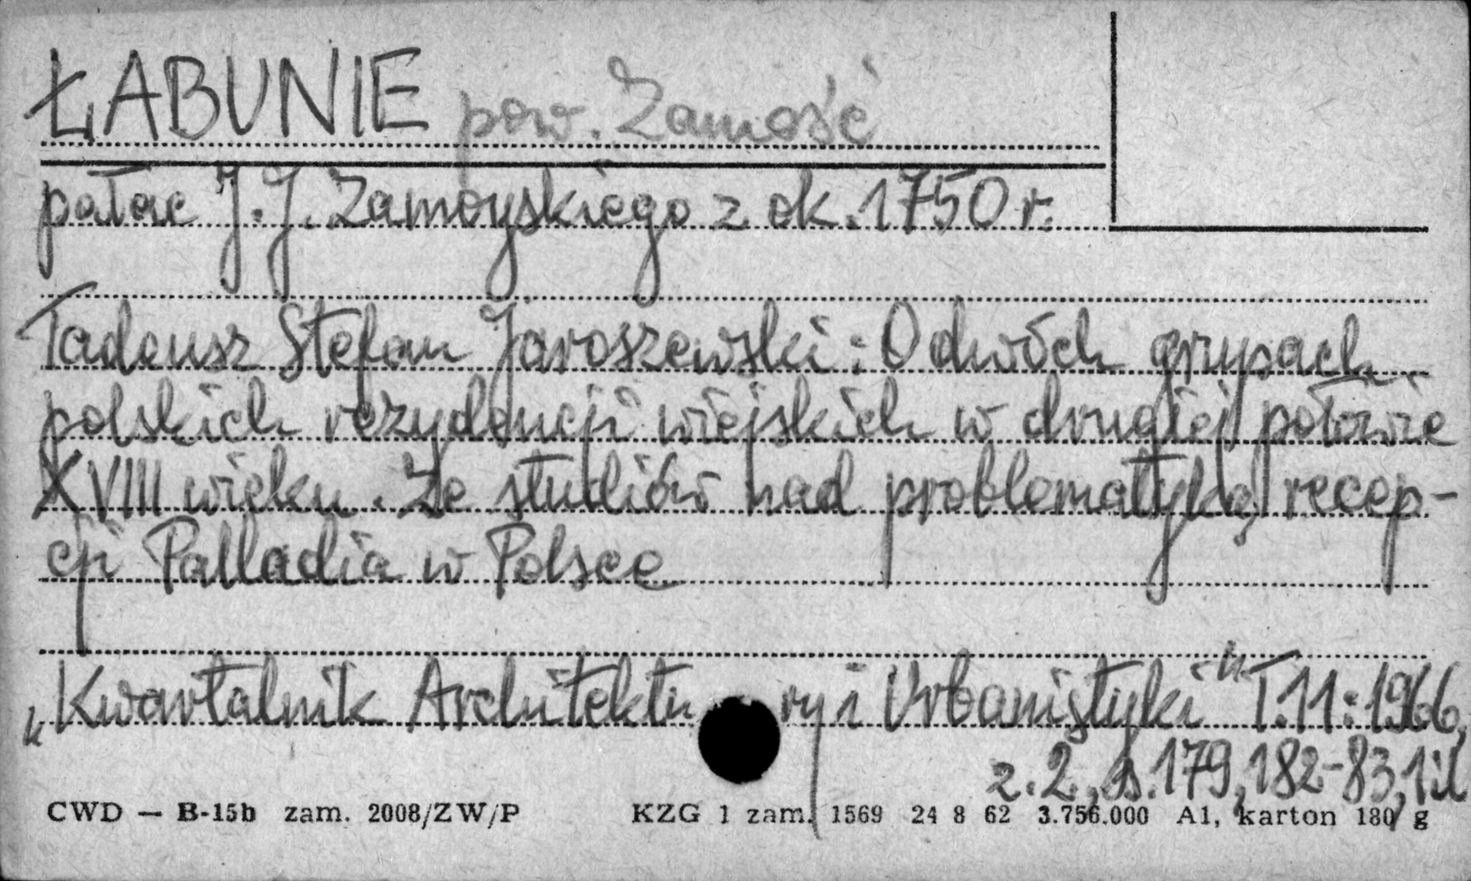 ŁABUNIE pow. Zamość
pałac J. J. Zamoyskiego z ok. 1750 r.
Tadeusz Stefan Jaroszewski: O dwóch grupach
polskich rezydencji wiejskich w drugiej połowie
XVIII wieku. Ze studiów nad problematyką recep-
cji Palladia w Polsce
„Kwartalnik Architektury i Urbanistyki" T.11: 1966,
z. 2, s. 179, 182-83, 1 il
CWD — B-15b zam. 2008/ZW/P KZG 1 zam. 1569 24 8 62 3.756.000 A1, karton 180 g